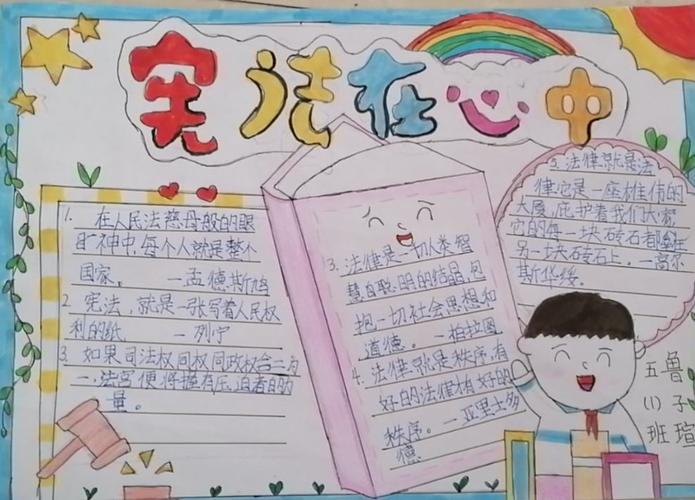 宪法在心中
1. 在人民法慈母般的眼
神中,每个人就是整个
国家。 —孟德斯鸠
2. 宪法,就是一张写着人民权
利的纸 —列宁
3. 如果司法权同权同政权合二为
一,法官便将握有压迫者的力
量。
3. 法律是一切人类智
慧自聪明的结晶,包
抱一切社会思想和
道德。—柏拉图
4. 法律就是秩序,有
好的法律有好的
秩序。—亚里士多
德
5.法律就是法
律它是一座雄伟的
大厦,庇护着我们大家
它的每一块砖石都垒在
另一块砖石上。—高尔
斯华绥。
五(1)班
鲁子瑄